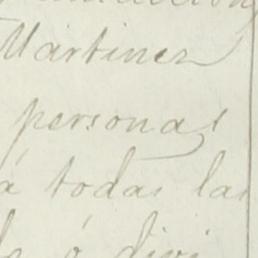 Martinez
personas
á todas las
ó divi